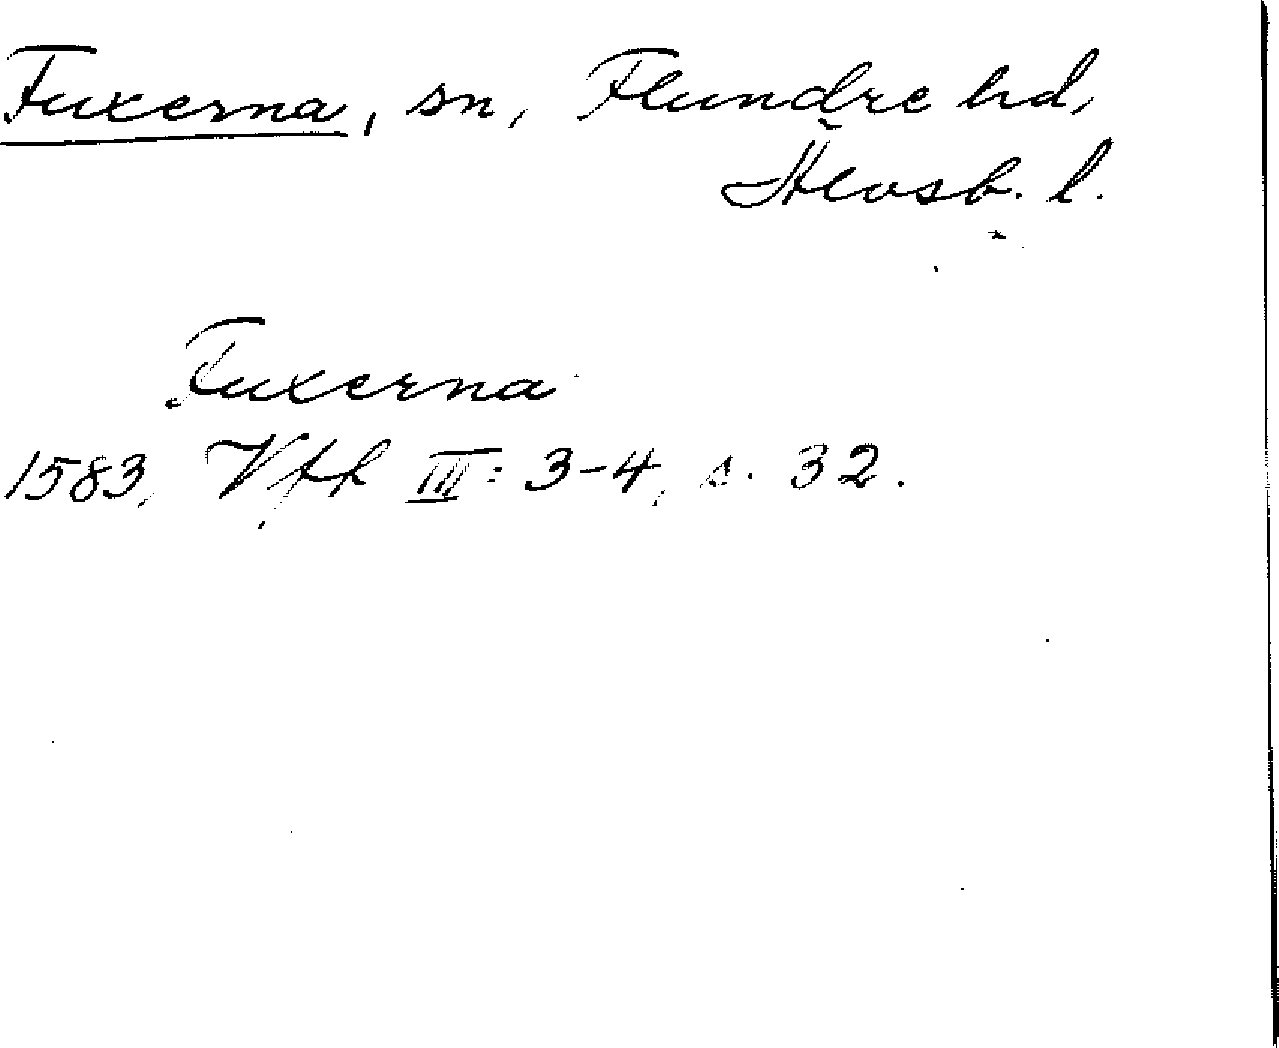 Fuxerna, sn, Flundre hd,
Älvsb. l.
Fuxerna
1583, Vfh III: 3-4, s. 32.